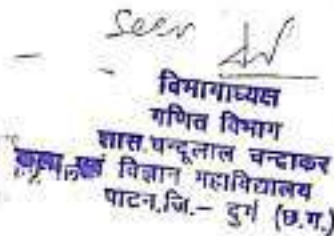 Seen
विभागाध्यक्ष
गणित विभाग
शास. चन्दूलाल चन्द्राकर
कला एवं विज्ञान महाविद्यालय
पाटन, जि.– दुर्ग (छ.ग.)